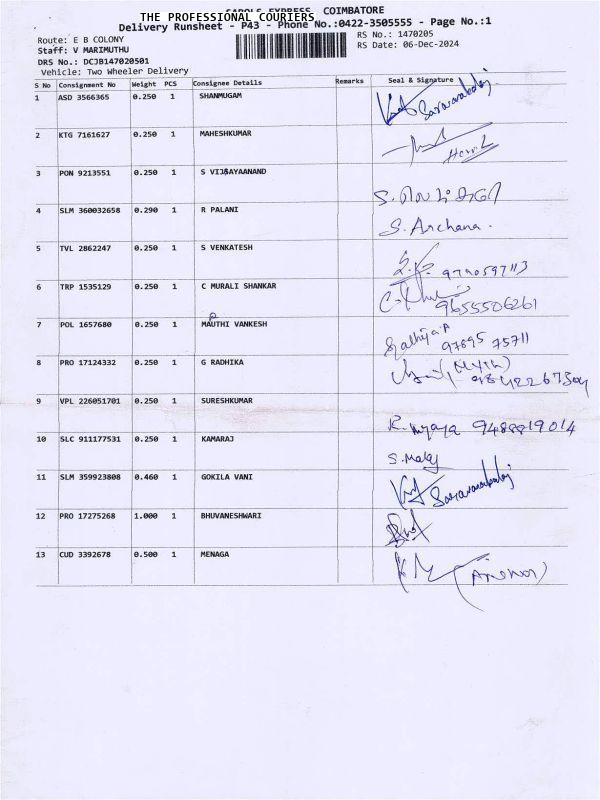 THE PROFESSIONAL COURIERS
EXPRESS COIMBATORE
Delivery Runsheet - P43 - Phone No.:0422-3505555 - Page No.:1
Route: E B COLONY
RS No.: 1470205
Staff: V MARIMUTHU
RS Date: 06-Dec-2024
DRS No.: DCJB147020501
Vehicle: Two Wheeler Delivery
S No Consignment No Weight PCS Consignee Details Remarks Seal & Signature
1 ASD 3566365 0.250 1 SHANMUGAM
2 KTG 7161627 0.250 1 MAHESHKUMAR
3 PON 9213551 0.250 1 S VIJAYAANAND
4 SLM 360032658 0.290 1 R PALANI S. Archana.
5 TVL 2862247 0.250 1 S VENKATESH
6 TRP 1535129 0.250 1 C MURALI SHANKAR 9655506261
7 POL 1657680 0.250 1 MAUTHI VANKESH 97895 75711
8 PRO 17124332 0.250 1 G RADHIKA
9 VPL 226051701 0.250 1 SURESHKUMAR
10 SLC 911177531 0.250 1 KAMARAJ
11 SLM 359923808 0.460 1 GOKILA VANI
12 PRO 17275268 1.000 1 BHUVANESHWARI
13 CUD 3392678 0.500 1 MENAGA